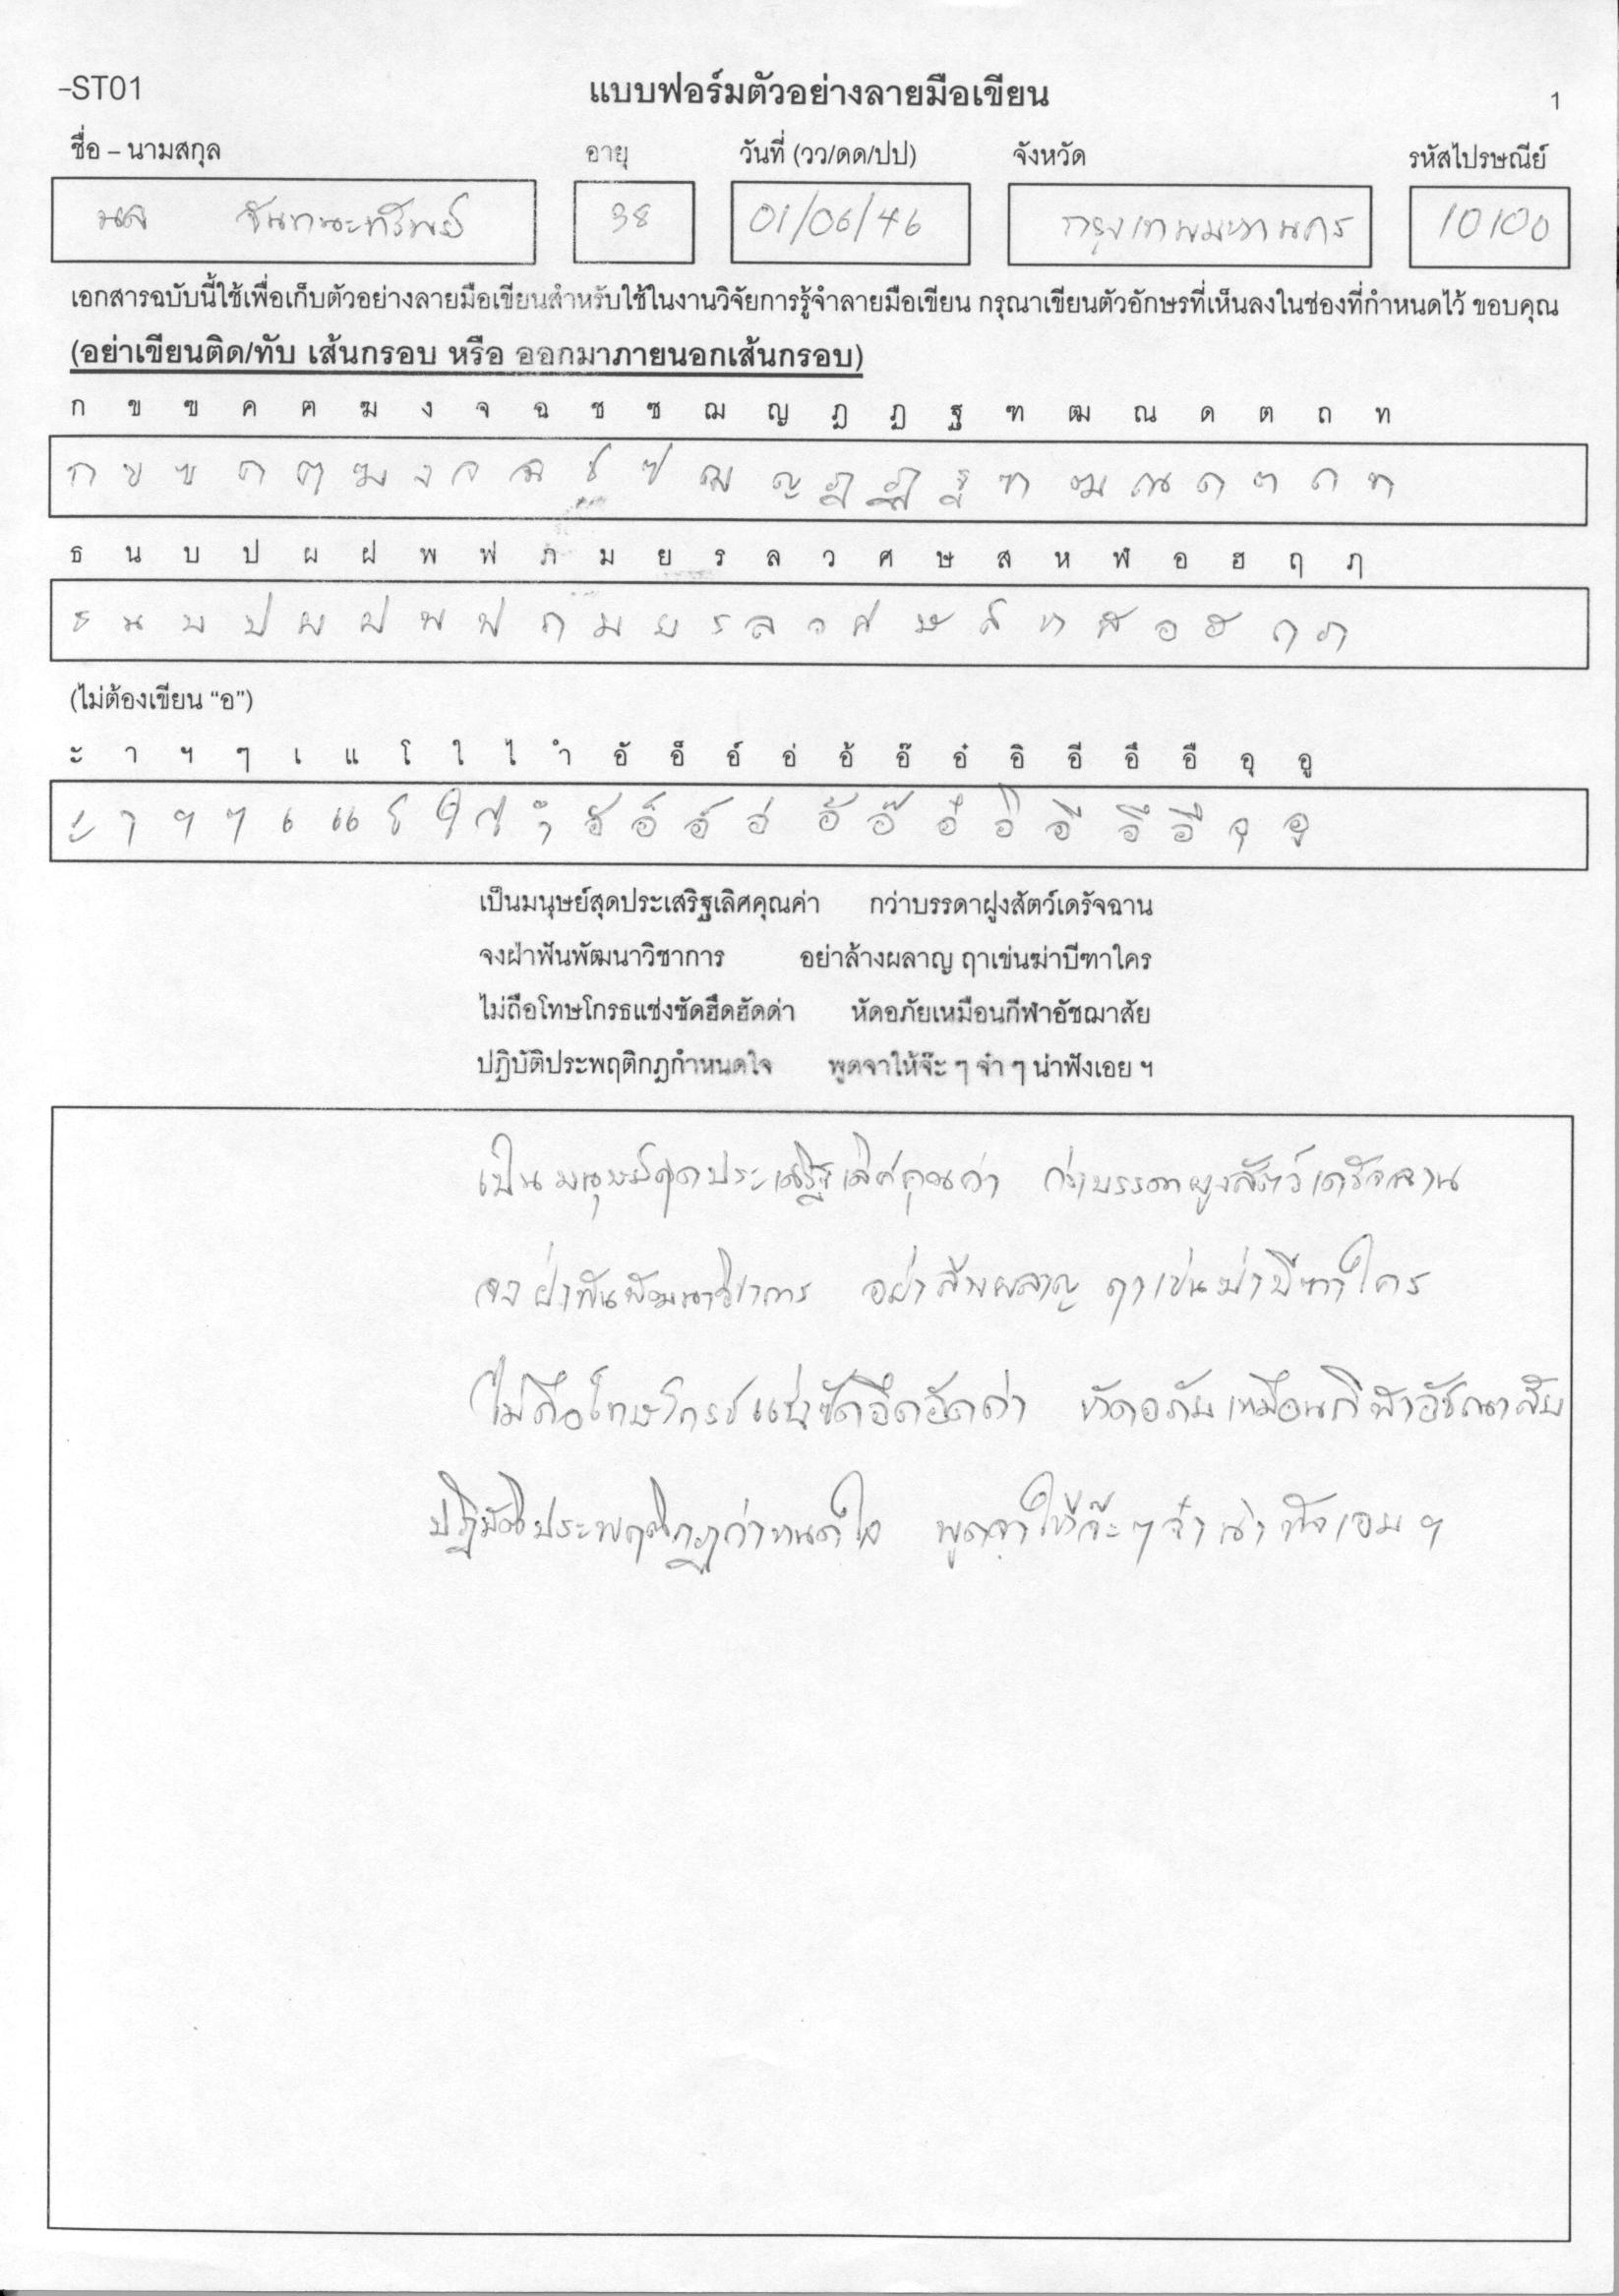 -ST01 แบบฟอร์มตัวอย่างลายมือเขียน 1
ชื่อ – นามสกุล อายุ วันที่ (วว/ดด/ปป) จังหวัด รหัสไปรษณีย์
จันทนะทรัพย์ 38 01/06/46 กรุงเทพมหานคร 10100
เอกสารฉบับนี้ใช้เพื่อเก็บตัวอย่างลายมือเขียนสำหรับใช้ในงานวิจัยการรู้จำลายมือเขียน กรุณาเขียนตัวอักษรที่เห็นลงในช่องที่กำหนดไว้ ขอบคุณ
(อย่าเขียนติด/ทับ เส้นกรอบ หรือ ออกมาภายนอกเส้นกรอบ)
ก ข ฃ ค ฅ ฆ ง จ ฉ ช ซ ฌ ญ ฎ ฏ ฐ ฑ ฒ ณ ด ต ถ ท
ก ข ฃ ค ฅ ฆ ง จ ฉ ช ซ ฌ ญ ฎ ฏ ฐ ฑ ฒ ณ ด ต ถ ท
ธ น บ ป ผ ฝ พ ฟ ภ ม ย ร ล ว ศ ษ ส ห ฬ อ ฮ ฤ ฦ
ธ น บ ป ผ ฝ พ ฟ ภ ม ย ร ล ว ศ ษ ส ห ฬ อ ฮ ฤ ฦ
(ไม่ต้องเขียน “อ”)
ะ า ฯ ๆ เ แ โ ใ ไ ำ อั อ็ อ์ อ่ อ้ อ๊ อ๋ อิ อี อึ อื อุ อู
ะ า ฯ ๆ เ แ โ ใ ไ ำ อั อ็ อ์ อ่ อ้ อ๊ อ๋ อิ อี อึ อื อุ อู
เป็นมนุษย์สุดประเสริฐเลิศคุณค่า กว่าบรรดาฝูงสัตว์เดรัจฉาน
จงฝ่าฟันพัฒนาวิชาการ อย่าล้างผลาญ ฤาเข่นฆ่าบีฑาใคร
ไม่ถือโทษโกรธแช่งซัดฮึดฮัดด่า หัดอภัยเหมือนกีฬาอัชฌาสัย
ปฏิบัติประพฤติกฎกำหนดใจ พูดจาให้จ๊ะ ๆ จ๋า ๆ น่าฟังเอย ฯ
เป็นมนุษย์สุดประเสริฐเลิศคุณค่า กว่าบรรดาฝูงสัตว์เดรัจฉาน
จงฝ่าฟันพัฒนาวิชาการ อย่าล้างผลาญ ฤาเข่นฆ่าบีฑาใคร
ไม่ถือโทษโกรธแช่งซัดฮึดฮัดด่า หัดอภัยเหมือนกีฬาอัชฌาสัย
ปฏิบัติประพฤติกฎกำหนดใจ พูดจาให้จ๊ะ ๆ จ๋า น่าฟังเอย ฯ